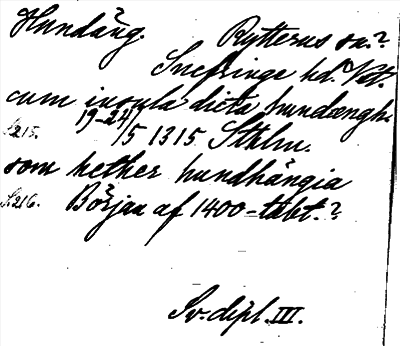 Hundäng. Rytterns sn.?
Snefringe hd. Vstm.
cum insula dicta hundængh
s. 215. 19-24/5 1315. Sthlm.
som hether hundhängia
s. 216. Början af 1400-talet.?
Sv. dipl. III.